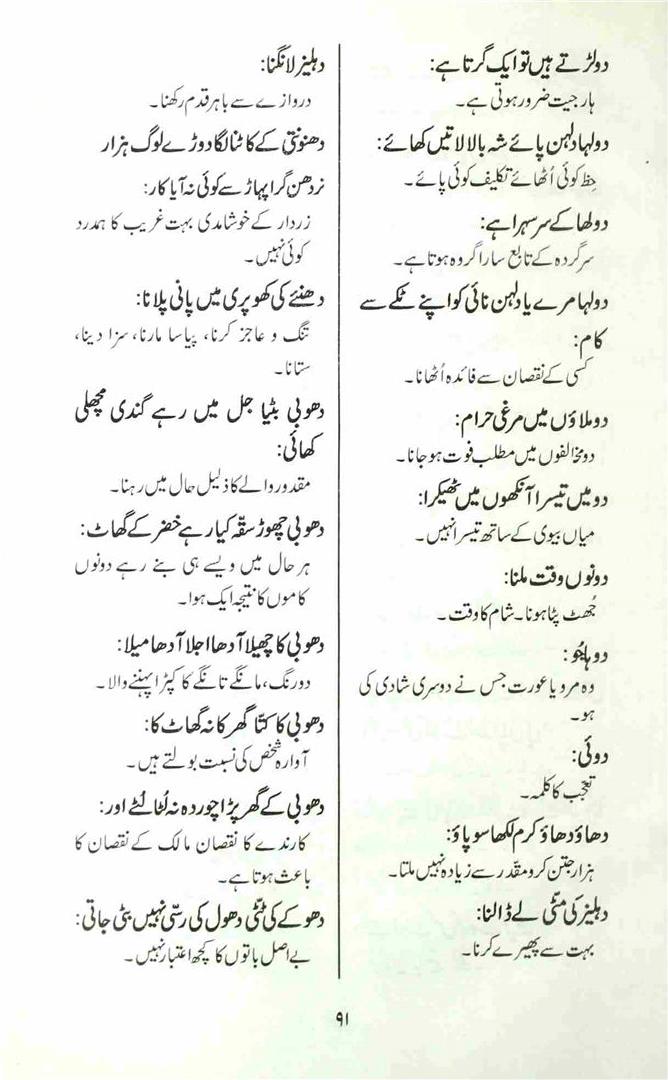 دو لڑتے ہیں تو ایک گرتا ہے:
ہار جیت ضرور ہوتی ہے۔
دولہا دلہن پائے شہ بالا لاتیں کھائے:
حظ کوئی اُٹھائے تکلیف کوئی پائے۔
دولھا کے سر سہرا ہے:
سرگردہ کے تابع سارا گروہ ہوتا ہے۔
دولہا مرے یا دلہن نائی کو اپنے ٹکے سے
کام:
کسی کے نقصان سے فائدہ اُٹھانا۔
دو ملاؤں میں مرغی حرام:
دو مخالفوں میں مطلب فوت ہوجانا۔
دو میں تیسرا آنکھوں میں ٹھیکرا:
میاں بیوی کے ساتھ تیسرا نہیں۔
دونوں وقت ملنا:
جُھٹ پٹا ہونا۔ شام کا وقت۔
دوہاجُو:
وہ مرد یا عورت جس نے دوسری شادی کی
ہو۔
دوئی:
تعجب کا کلمہ۔
دھاؤ دھاؤ کرم لکھا سو پاؤ:
ہزار جتن کرو مقدّر سے زیادہ نہیں ملتا۔
دہلیز کی مٹّی لے ڈالنا:
بہت سے پھیرے کرنا۔
دہلیز لانگنا:
دروازے سے باہر قدم رکھنا۔
دھنونتی کے کانٹا لگا دوڑے لوگ ہزار
نردھن گرا پہاڑ سے کوئی نہ آیا کار:
زردار کے خوشامدی بہت غریب کا ہمدرد
کوئی نہیں۔
دھنئے کی کھوپری میں پانی پلانا:
تنگ و عاجز کرنا، پیاسا مارنا، سزا دینا،
ستانا۔
دھوبی بٹیا جل میں رہے گندی مچھلی
کھائی:
مقدور والے کا ذلیل حال میں رہنا۔
دھوبی چھوڑ سقّہ کیا رہے خضر کے گھاٹ:
ہر حال میں ویسے ہی بنے رہے دونوں
کاموں کا نتیجہ ایک ہوا۔
دھوبی کا چھیلا آدھا اجلا آدھا میلا:
دورنگ، مانگے تانگے کا کپڑا پہننے والا۔
دھوبی کا کتّا گھر کا نہ گھاٹ کا:
آوارہ شخص کی نسبت بولتے ہیں۔
دھوبی کے گھر پڑا چور دہ نہ لُٹا لٹے اور:
کارندے کا نقصان مالک کے نقصان کا
باعث ہوتا ہے۔
دھوکے کی ٹٹّی دھول کی رسّی نہیں بٹی جاتی:
بے اصل باتوں کا کچھ اعتبار نہیں۔
۹۱